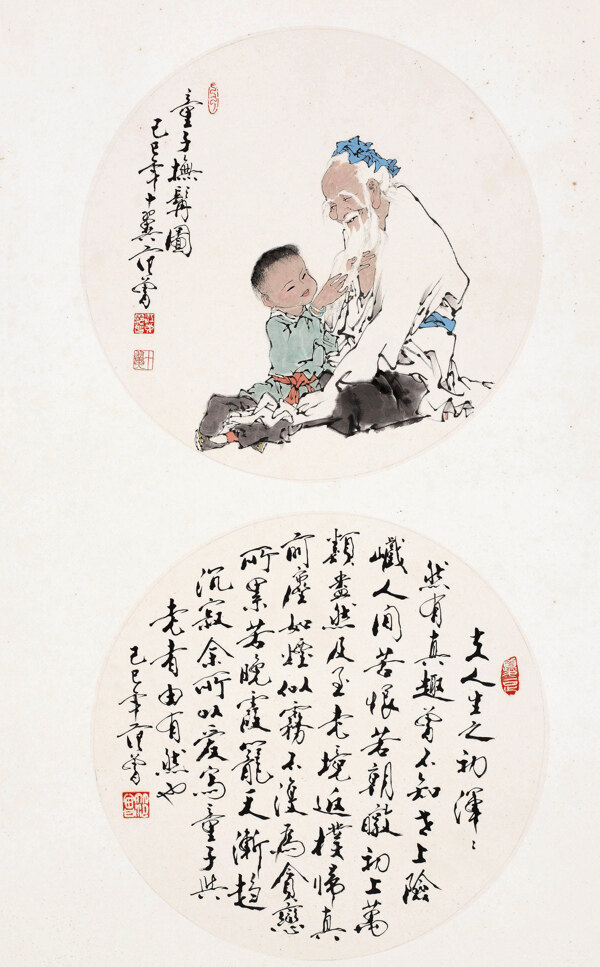 童子撫髯圖
己巳年十翼范曾
夫人生之初渾〻
然有真趣曾不知世上險
巇人间苦恨若朝暾初上萬
類盎然及至老境返樸歸真
前塵如煙似霧不復為貪戀
所累若晚霞籠天漸趨
沉寂余所以愛寫童子與
老者由有然也
己巳年范曾